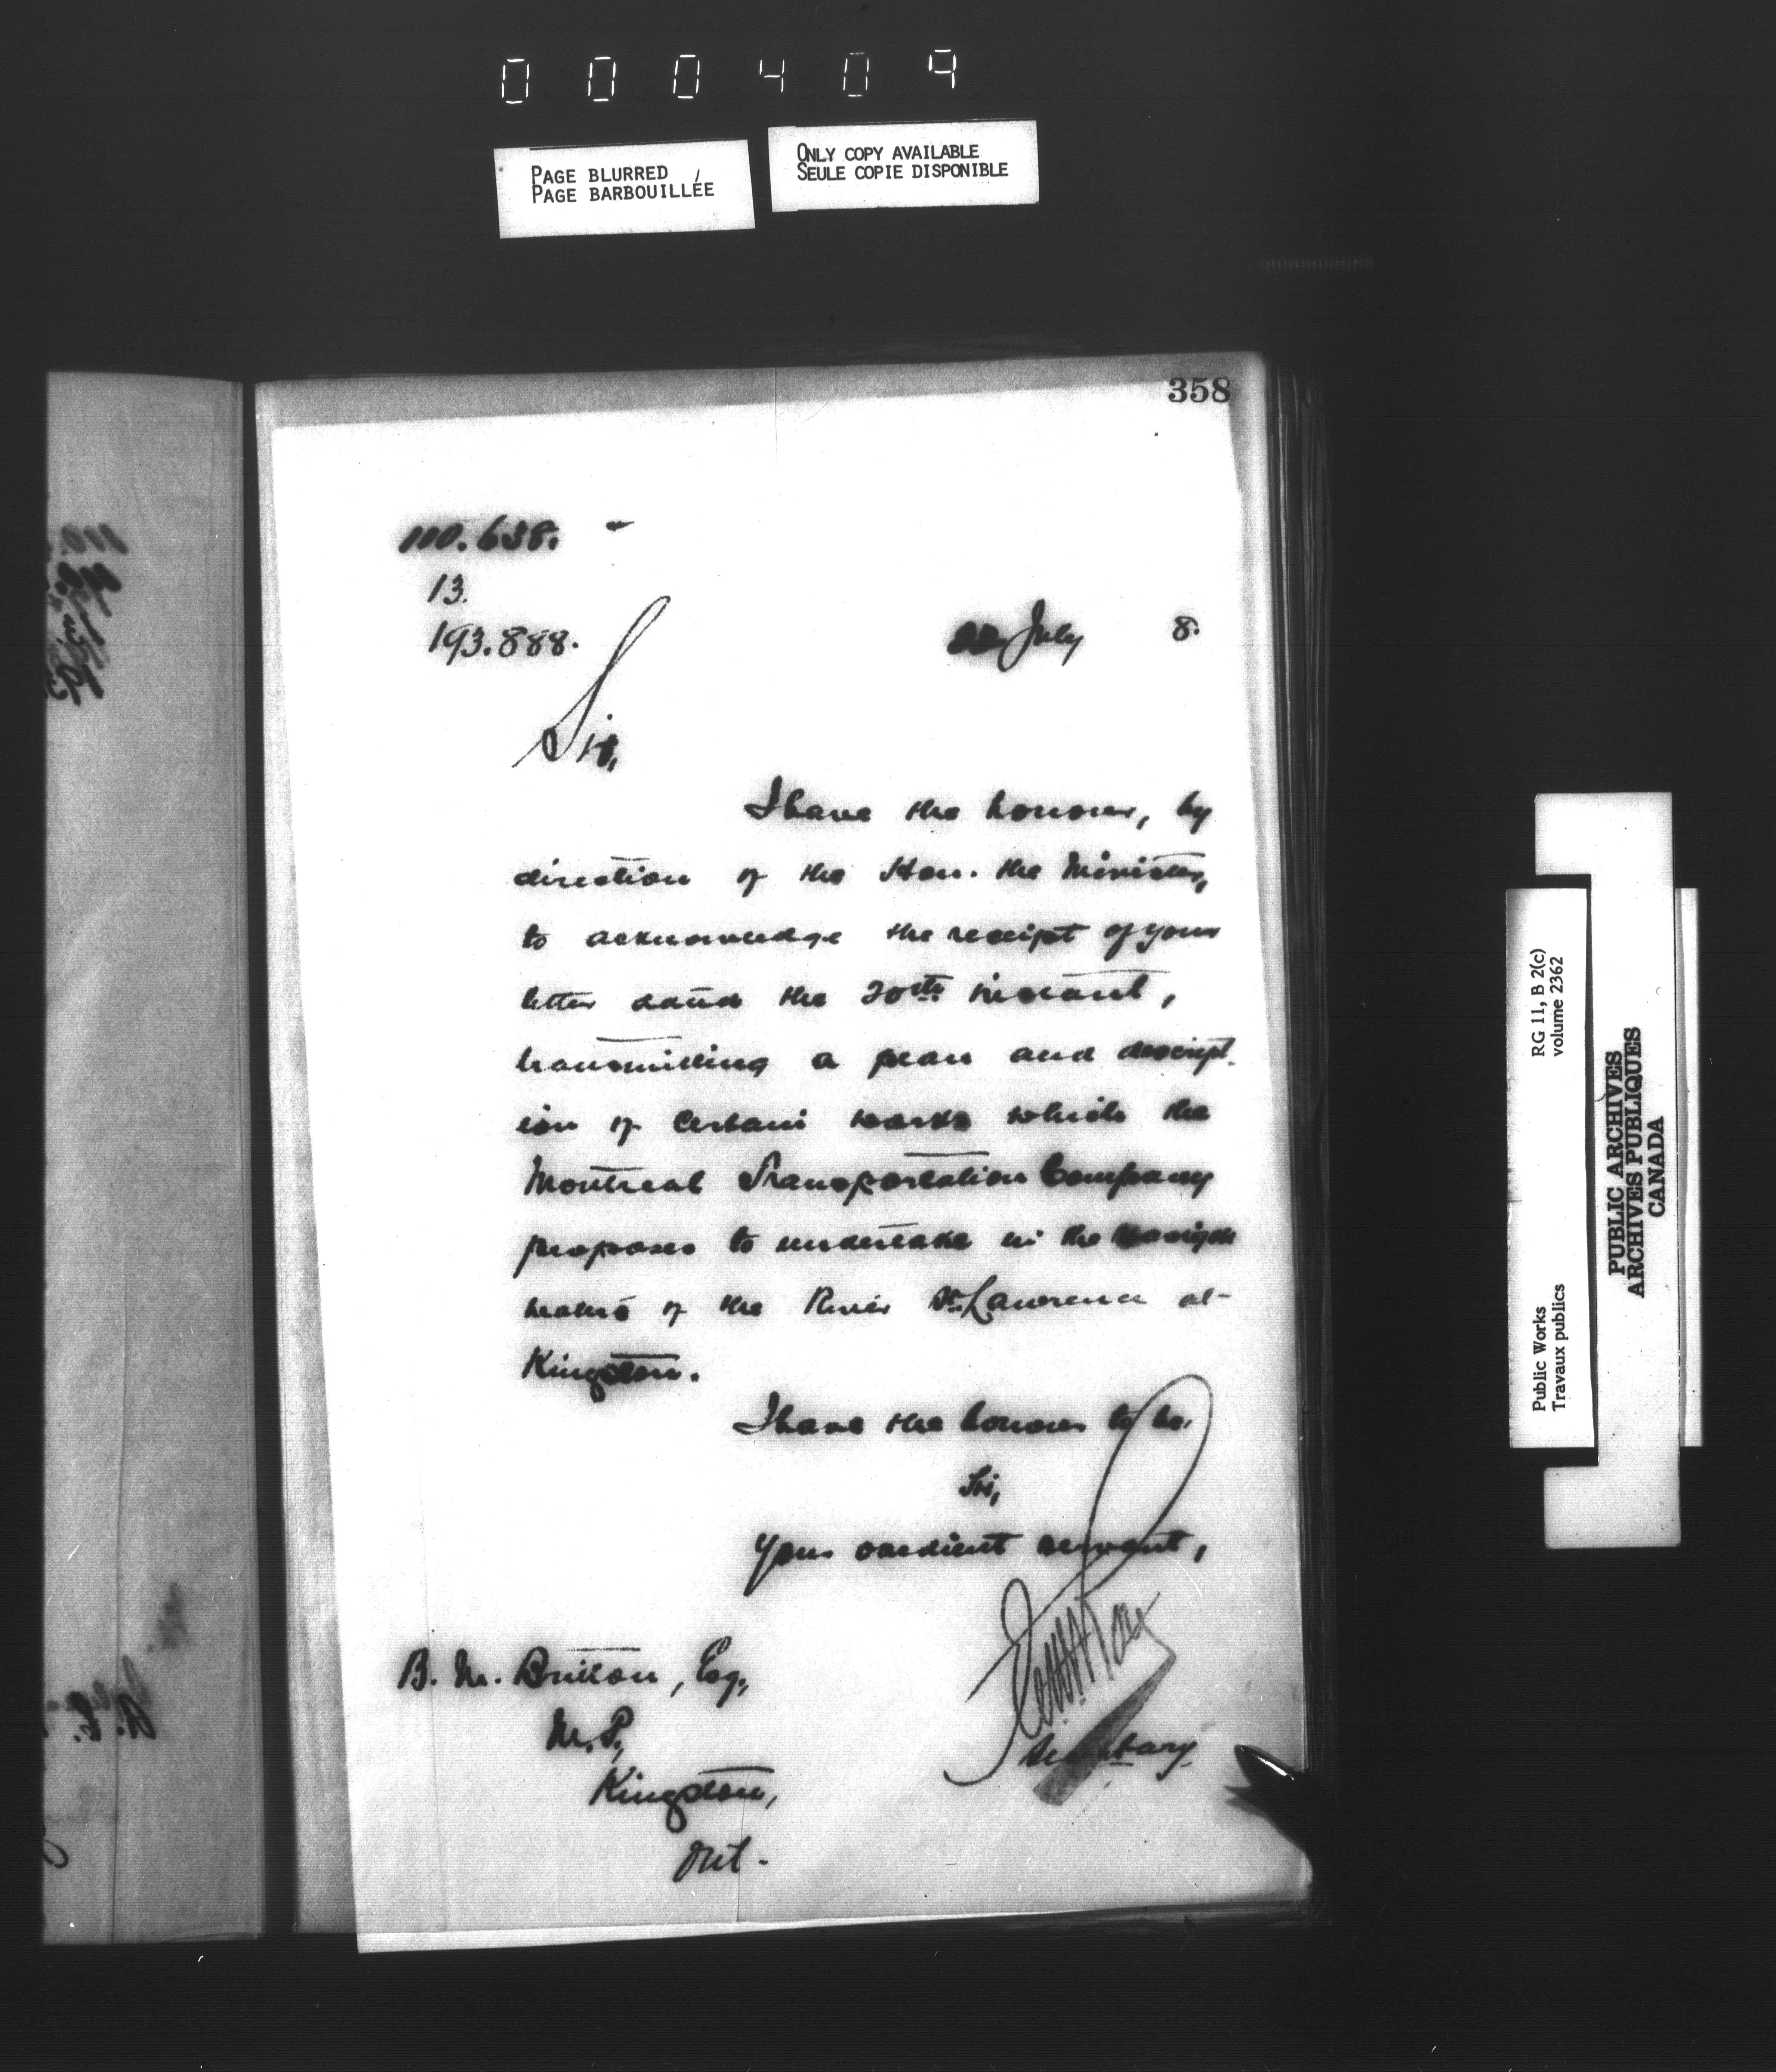 000409
PAGE BLURRED
PAGE BARBOUILLÉE
ONLY COPY AVAILABLE
SEULE COPIE DISPONIBLE
358
110.638.
13.
193.888.
July 8.
Sir,
I have the honour, by
direction of the Hon. the Minister,
to acknowledge the receipt of your
letter dated the 20th instant,
transmitting a plan and descript-
ion of certain works which the
Montreal Transportation Company
proposes to undertake in the
waters of the River St. Lawrence at
Kingston.
I have the honour to be,
Sir,
Your obedient servant,
Secretary.
B. M. Britton, Esq.,
M.P.,
Kingston,
Ont.
Public Works
Travaux publics
RG 11, B 2(c)
volume 2362
PUBLIC ARCHIVES
ARCHIVES PUBLIQUES
CANADA